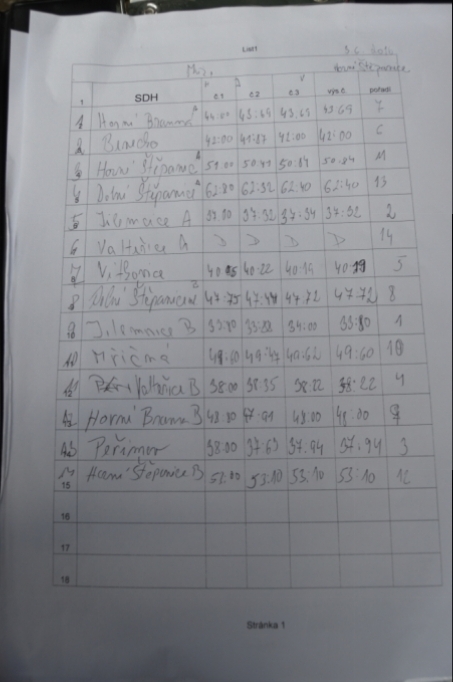 List1
Horní Štěpanice
Muži
SDH č.1 č.2 č.3 výs.č. pořadí
1 Horní Branná A 44:00 43:69 43:63 43:69 7
2 Benecko 42:00 41:87 42:00 42:00 6
3 Horní Štěpanice A 51:00 50:84 50:84 11
4 Dolní Štěpanice A 62:80 62:32 62:40 62:40 13
5 Jilemnice A 37:32 37:34 37:32 2
6 Valteřice A D D D D 14
7 Vítkovice 40:22 40:19 40:19 5
8 Dolní Štěpanice B 47:75 47:72 47:72 8
9 Jilemnice B 34:00 33:80 1
10 Mříčná 49:60 49:47 49:62 49:60 10
11 Valteřice B 38:00 38:35 38:22 38:22 4
12 Horní Branná B 48:00 48:00 9
13 Peřimov 38:00 37:63 37.94 37.94 3
15 Horní Štěpanice B 53:10 53:10 53:10 12
16
17
18
Stránka 1